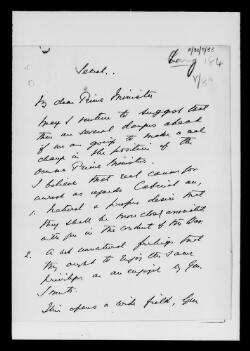 Secret.
My dear Prime Minister
May I venture to suggest that
there are several dangers ahead
if we are going to make a real
change in the position of the
Prime Ministers.
I believe that real cause for
unrest as regards Cabinet are,
1. Natural & proper desire that
they shall be more closely associated
with you in the conduct of the War
2. A not unnatural feeling that
they ought to enjoy the same
privileges as are enjoyed by Gen.
Smuts.
This opens a wide field, Gen